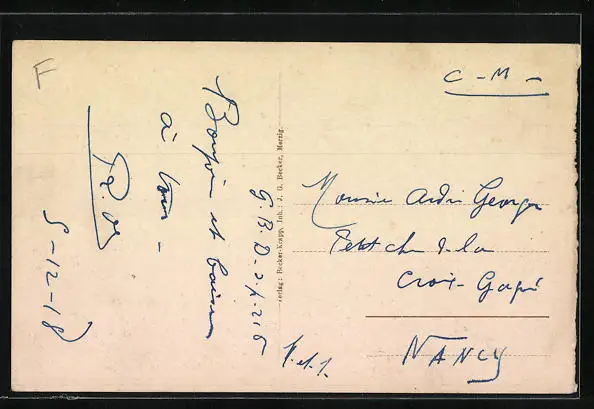 F
C - M -
Bonjour et baisers
à tous -
5-12-18
Verlag: Becker-Knapp, Inh.: J. G. Becker, Merzig.
Monsieur André Georges
Petit ch. de la
Croix-Gagné
NANCY